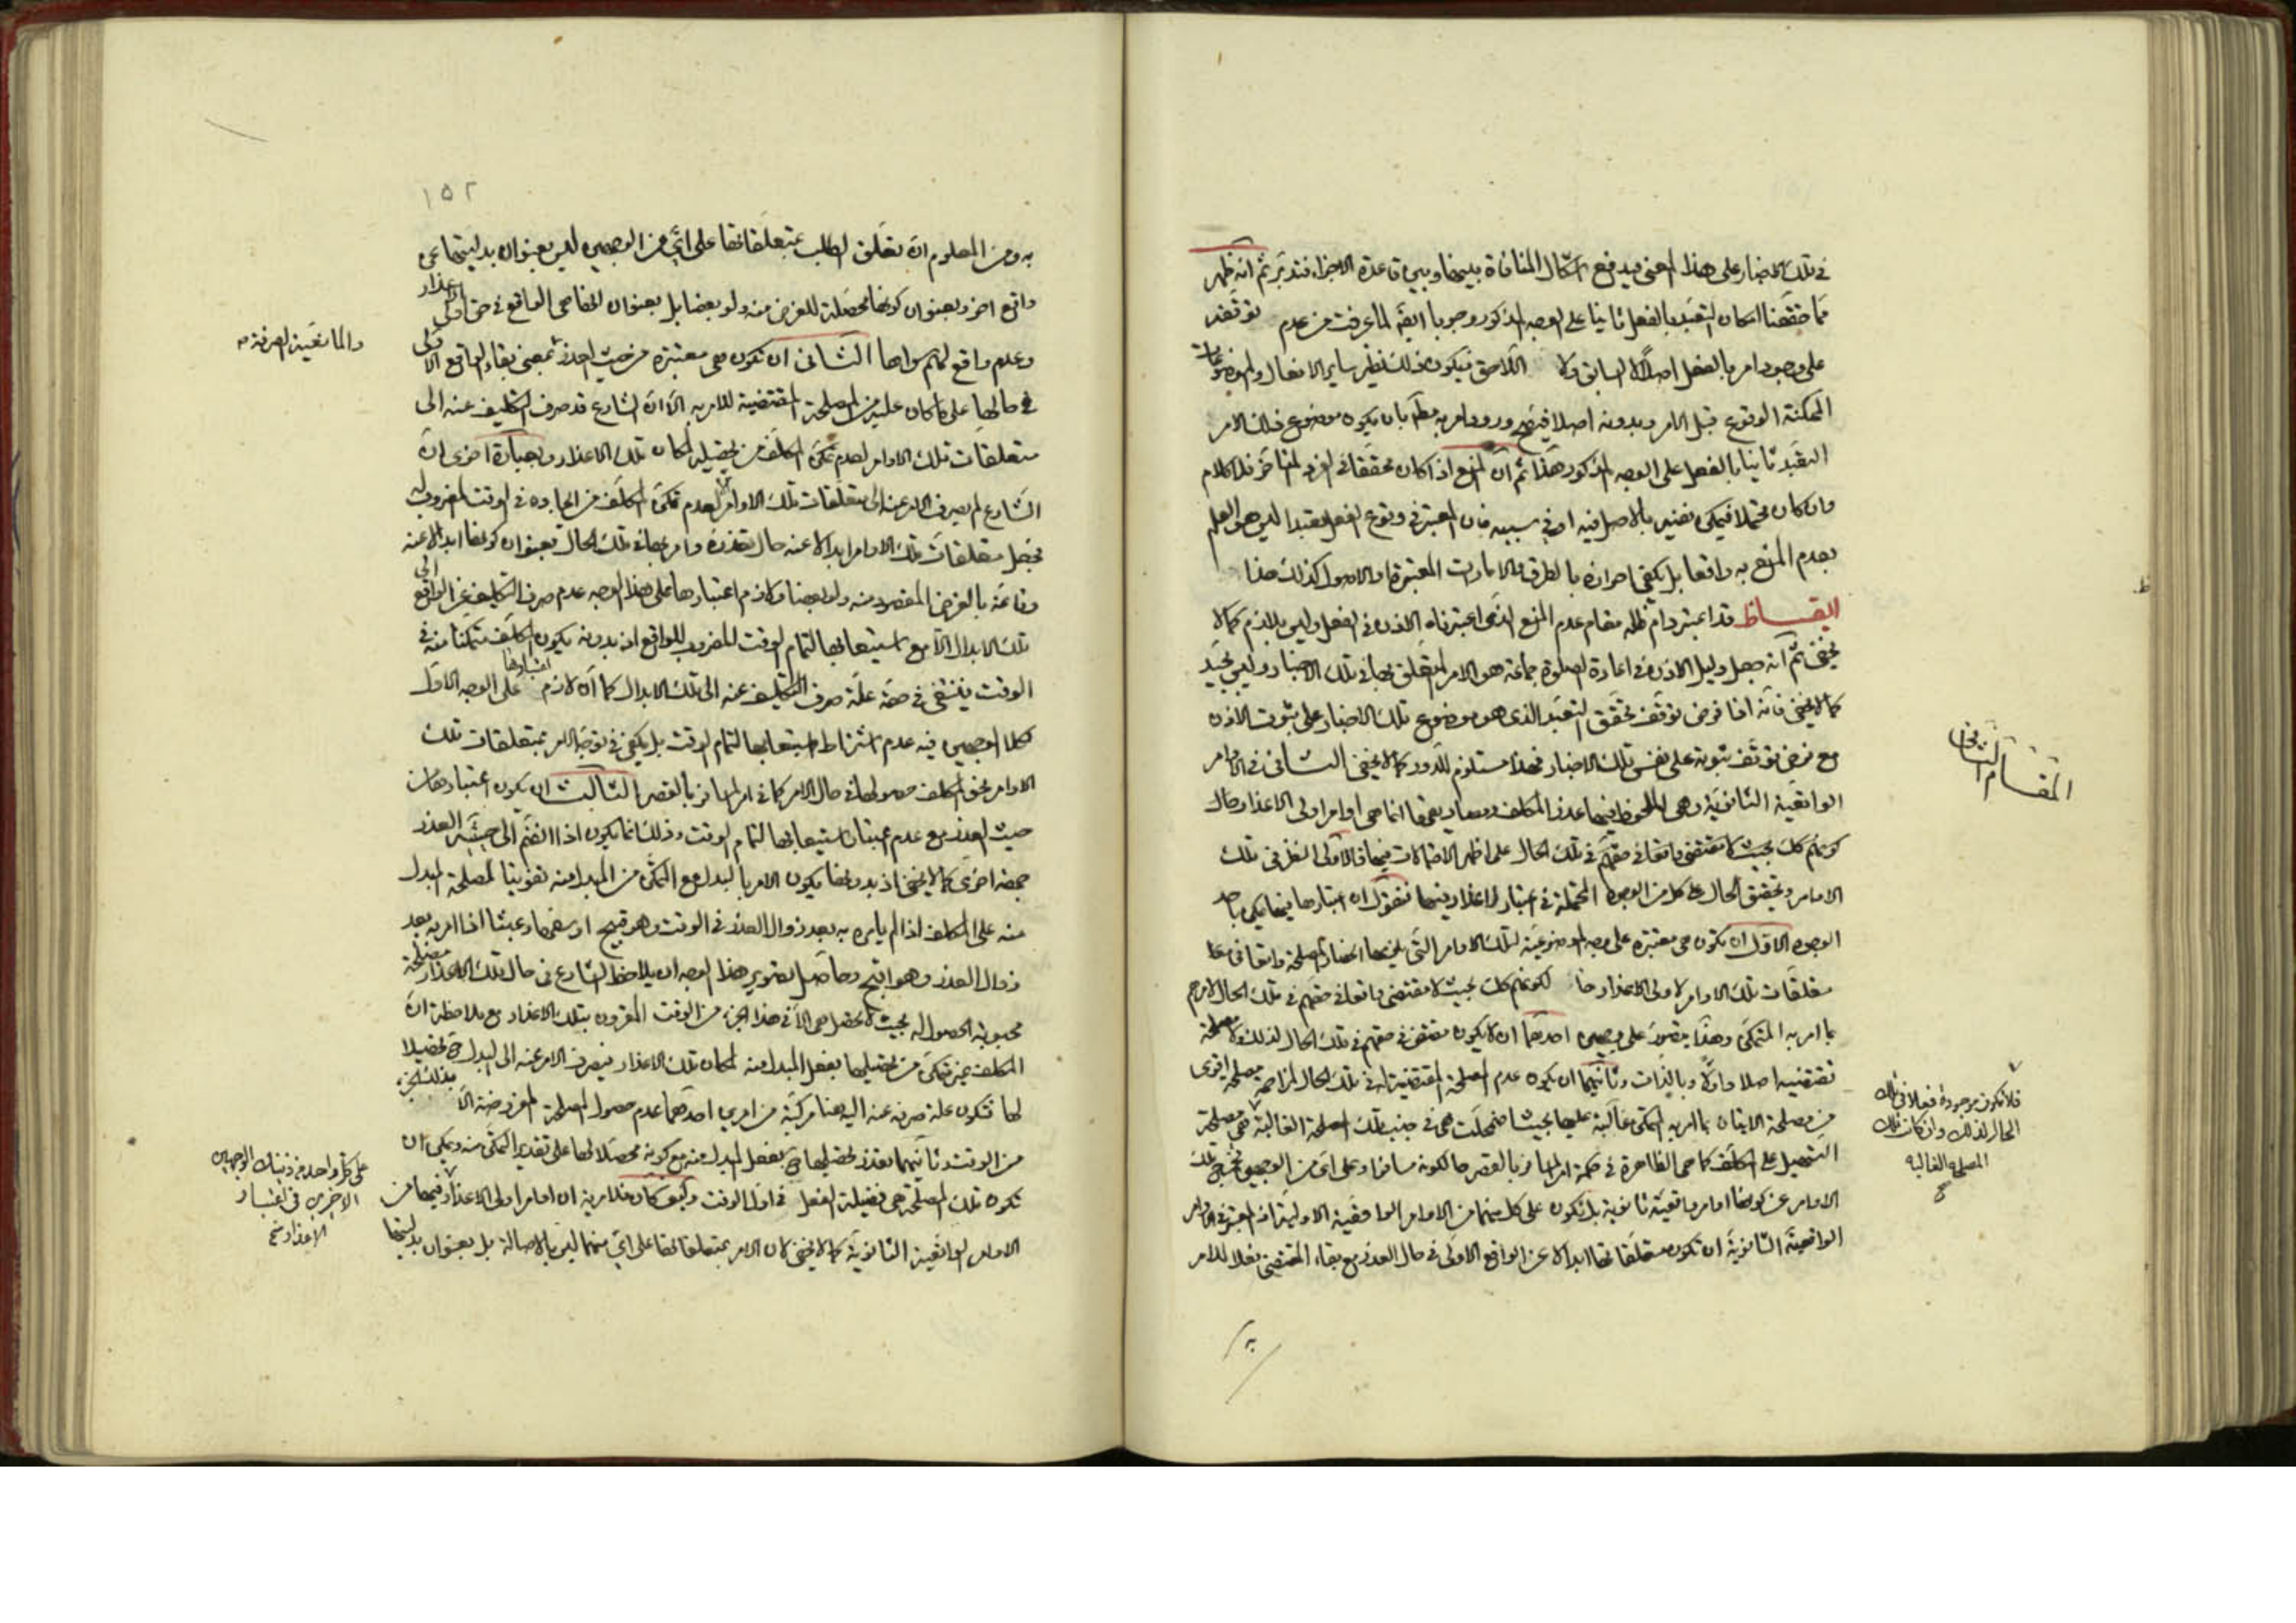 في تلك الاخبار على هذا المعنى يندفع اشكال المنافاة بينها وبين قاعدة الاجزاء فتدبر ثم انه ظهر
مما حققنا امكان التعبد بالفعل ثانيا على الوجه المذكور وجوبا ايضا لما عرفت من عدم توقفه
على وجود امر بالفعل اصلا لا السابق ولا اللاحق فيكون ذلك نظير ساير الافعال والموضوعات
الممكنة الوقوع قبل الامر وبدونه اصلا فيصح ورود امر به مط بان يكون موضوع ذلك الامر
التعبد ثانيا بالفعل على الوجه المذكور هذا ثم ان المنع اذا كان محققا في الفرد المتاخر فلا كلام
وان كان محتملا فيمكن نفيه بالاصل فيه او في سببه فان المعتبر في وقوع الفعل تعبدا ليس هو العلم
بعدم المنع به واقعا بل يكفي احرازه بالطرق والامارات المعتبرة والاصول كذلك هذا
ايقاظ قد اعتبر دام ظله مقام عدم المنع الذي اعتبرناه الاذن في الفعل وليس بلازم كما لا
يخفى ثم انه جعل دليل الاذن في اعادة الصلوة جماعة هو الامر المتعلق بها في تلك الاخبار وليس بجيد
كما لا يخفى فانه اذا فرض توقف تحقق التعبد الذي هو موضوع تلك الاخبار على ثبوت الاذن
مع فرض توقف ثبوته على نفس تلك الاخبار فهذا مستلزم للدور كما لا يخفى الثاني في الاوامر
المقام الثاني
الواقعية الثانوية وهي الملحوظ فيها عذر المكلف ومصاديقها انما هي اوامر اولى الاعذار حال
كونهم كك بحيث لا مقتضى واقعا في حقهم في تلك الحال على اظهر الاحتمالات فيها فالاولى النظر في تلك
الاوامر وتحقيق الحال على كل من الوجوه المحتملة في اعتبار الاعذار فيها فنقول ان اعتبارها فيها يمكن باحد
الوجوه الاول ان تكون هي معتبرة على وجه الموضوعية لتلك الاوامر التي يلزمها انحصار المصلحة واقعا في
متعلقات تلك الاوامر لاولى الاعذار حال كونهم كك بحيث لا مقتضى واقعا في حقهم في تلك الحال لامرهم
بما امر به المتمكن وهذا يتصور على وجهين احدهما ان لا يكون مقتضى في حقهم في تلك الحال لذلك ولا مصلحة
تقتضيه اصلا واولا وبالذات وثانيهما ان يكون عدم المصلحة المقتضية له في تلك الحال لمزاحمة مصلحة اقوى
من مصلحة الاتيان بما امر به المتمكن غالبة عليها بحيث اضمحلت هي في جنب تلك المصلحة الغالبة فهي مصلحة
فلا تكون موجودة فعلا في تلك
الحال لذلك وان كانت تلك
المصلحة الغالبة
التسهيل على المكلف كما هي الظاهرة في حكمة امر المسافر بالقصر حال كونه مسافرا وعلى اي من الوجهين تخرج تلك
الاوامر عن كونها اوامر واقعية ثانوية بل تكون على كل منهما من الاوامر الواقعية الاولية اذ المعتبر في الاوامر
الواقعية الثانوية ان تكون متعلقاتها ابدالا عن الواقع الاولى في حال العذر مع بقاء المقتضى فعلا للامر
١٥٢
به ومن المعلوم ان تعلق الطلب بمتعلقاتها على اي من الوجهين ليس بعنوان بدليتها عن
واقع اخر وبعنوان كونها محصلة للغرض منه ولو بعضا بل بعنوان انها هي الواقع في حق اولى الاعذار
وعدم واقع لهم سواها الثاني ان تكون هي معتبرة من حيث العذر بمعنى بقاء الواقع الاولى
والمانعية الصرفة
في حالها على ما كان عليه من المصلحة المقتضية للامر به الا ان الشارع قد صرف التكليف عنه الى
متعلقات تلك الاوامر لعدم تمكن المكلف من تحصيله لمكان تلك الاعذار وبعبارة اخرى ان
الشارع لم يصرف الامر عنه الى متعلقات تلك الاوامر الا لعدم تمكن المكلف من ايجاده في الوقت المضروب له
فجعل متعلقات تلك الاوامر ابدالا عنه حال تعذره وامر بها في تلك الحال بعنوان كونها ابدالا عنه
وقائمة بالغرض المقصود منه ولو بعضا ولازم اعتبارها على هذا الوجه عدم صرف التكليف عن الواقع الى
تلك الابدال الا مع استيعابها لتمام الوقت المضروب للواقع اذ بدونه يكون المكلف متمكنا منه في
الوقت فينتفى في حقه علة صرف التكليف عنه الى تلك الابدال كما ان لازم اعتبارها على الوجه الاول
بكلا الوجهين فيه عدم اشتراط استيعابها لتمام الوقت بل يكفي في توجه الامر بمتعلقات تلك
الاوامر نحو المكلف حصولها في حال الامر كما في امر المسافر بالقصر الثالث ان يكون اعتبارها من
حيث العذر مع عدم اعتبار استيعابها لتمام الوقت وذلك انما يكون اذا انضم الى حيثية العذر
جهة اخرى كما لا يخفى اذ بدونها يكون الامر بالبدل مع التمكن من المبدل منه تفويتا لمصلحة المبدل
منه على المكلف اذا لم يامره به بعد زوال العذر في الوقت وهو قبيح او سفها وعبثا اذا امر به بعد
زوال العذر وهو اقبح وحاصل تصوير هذا الوجه ان يلاحظ الشارع في حال تلك الاعذار مصلحة
محبوبة الحصول له بحيث لا تحصل هي الا في هذا الجزء من الوقت المقرون بتلك الاعذار مع ملاحظة ان
المكلف غير متمكن من تحصيلها بفعل المبدل منه لمكان تلك الاعذار فيصرف الامر عنه الى البدل ح تحصيلا
لها فتكون علة صرفه عنه اليه هنا مركبة من امرين احدهما عدم حصول المصلحة المفروضة الا بذلك الجزء
من الوقت وثانيهما تعذر تحصيلها ح بفعل المبدل منه مع كونه محصلا لها على تقدير التمكن منه ويمكن ان
تكون تلك المصلحة هي فضيلة الفعل في اول الوقت وكيف كان فلا ريب ان اوامر اولى الاعذار فيها من
على كل واحد من ذينك الوجهين
الاخيرين في اعتبار
الاعذار
الاوامر الواقعية الثانوية كما لا يخفى لان الامر بمتعلقاتها على اي منهما ليس بالاصالة بل بعنوان بدليتها